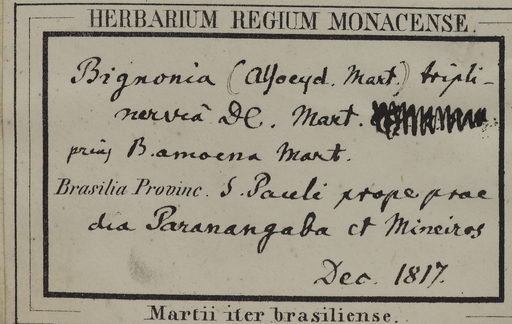 HERBARIUM REGIUM MONACENSE.
Bignonia (Alsocyd. Mart.) tripli-
nervia DC. Mart.
prius B. amoena Mart.
Brasilia Provinc. S. Pauli prope prae
dia Paranangaba et Mineiros
Dec. 1817.
Martii iter brasiliense.